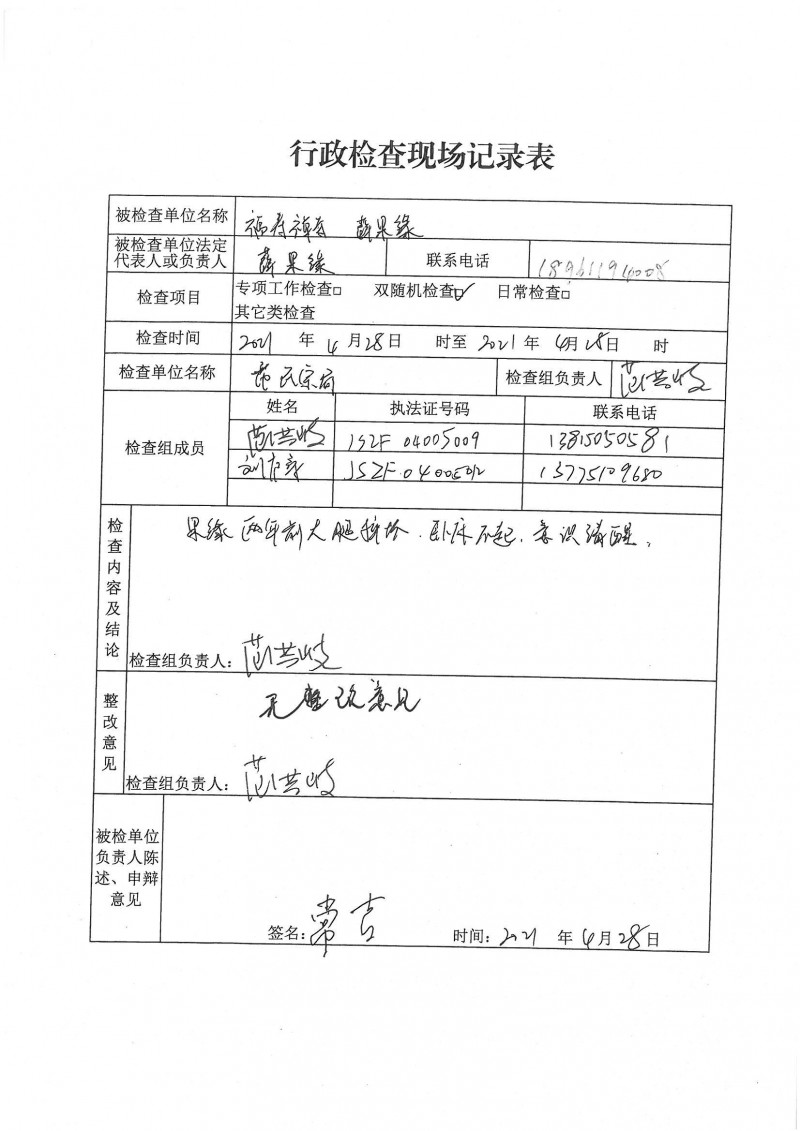 行政检查现场记录表
被检查单位名称 福寿禅寺 薛果缘
被检查单位法定
代表人或负责人 薛果缘 联系电话 18961194008
检查项目 专项工作检查□ 双随机检查☑ 日常检查□
其它类检查
检查时间 2021 年 4 月 28 日 时至 2021 年 4 月 28 日 时
检查单位名称 民宗局 检查组负责人 范芸岐
检查组成员 姓名 执法证号码 联系电话
范芸岐 JSZF 04005009 13815050581
JSZF.04005012 13775109680
检查内容及结论
果缘两年前大腿摔坏.卧床不起,意识清醒。
检查组负责人: 范芸岐
整改意见
无整改意见
检查组负责人: 范芸岐
被检单位
负责人陈
述、申辩
意见
签名: 常吉 时间: 2021 年 4 月 28 日